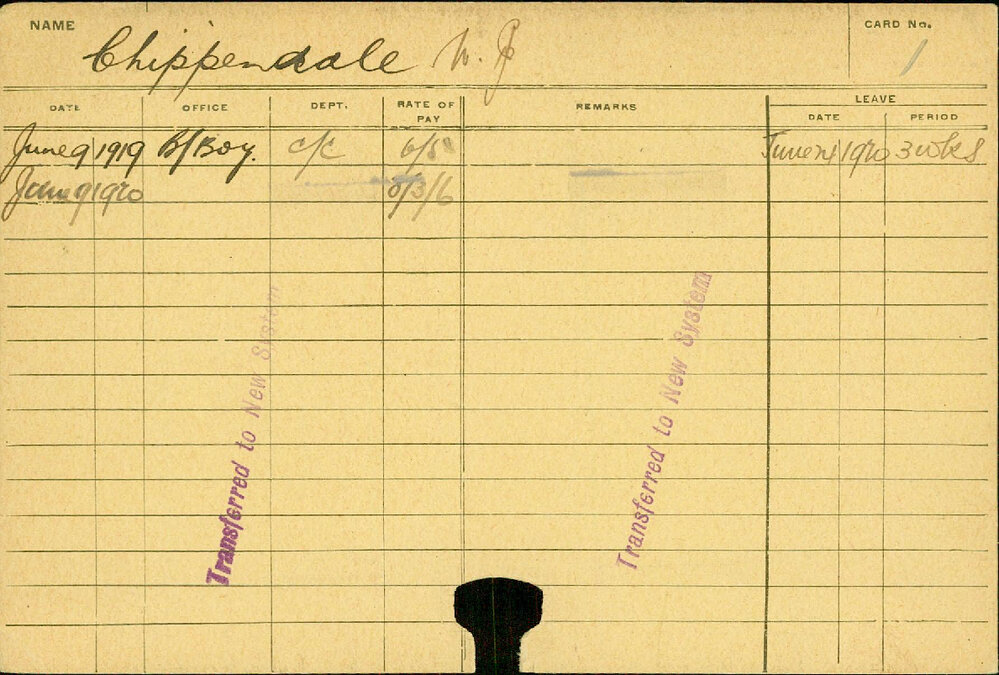 NAME Chippendale W. J CARD No. 1
DATE OFFICE DEPT. RATE OF PAY REMARKS LEAVE
DATE PERIOD
June 9 1919 B/Boy. C/C 6/5 June 14 1920 3 wks
June 9 1920 8/3/6
Transferred to New System
Transferred to New System